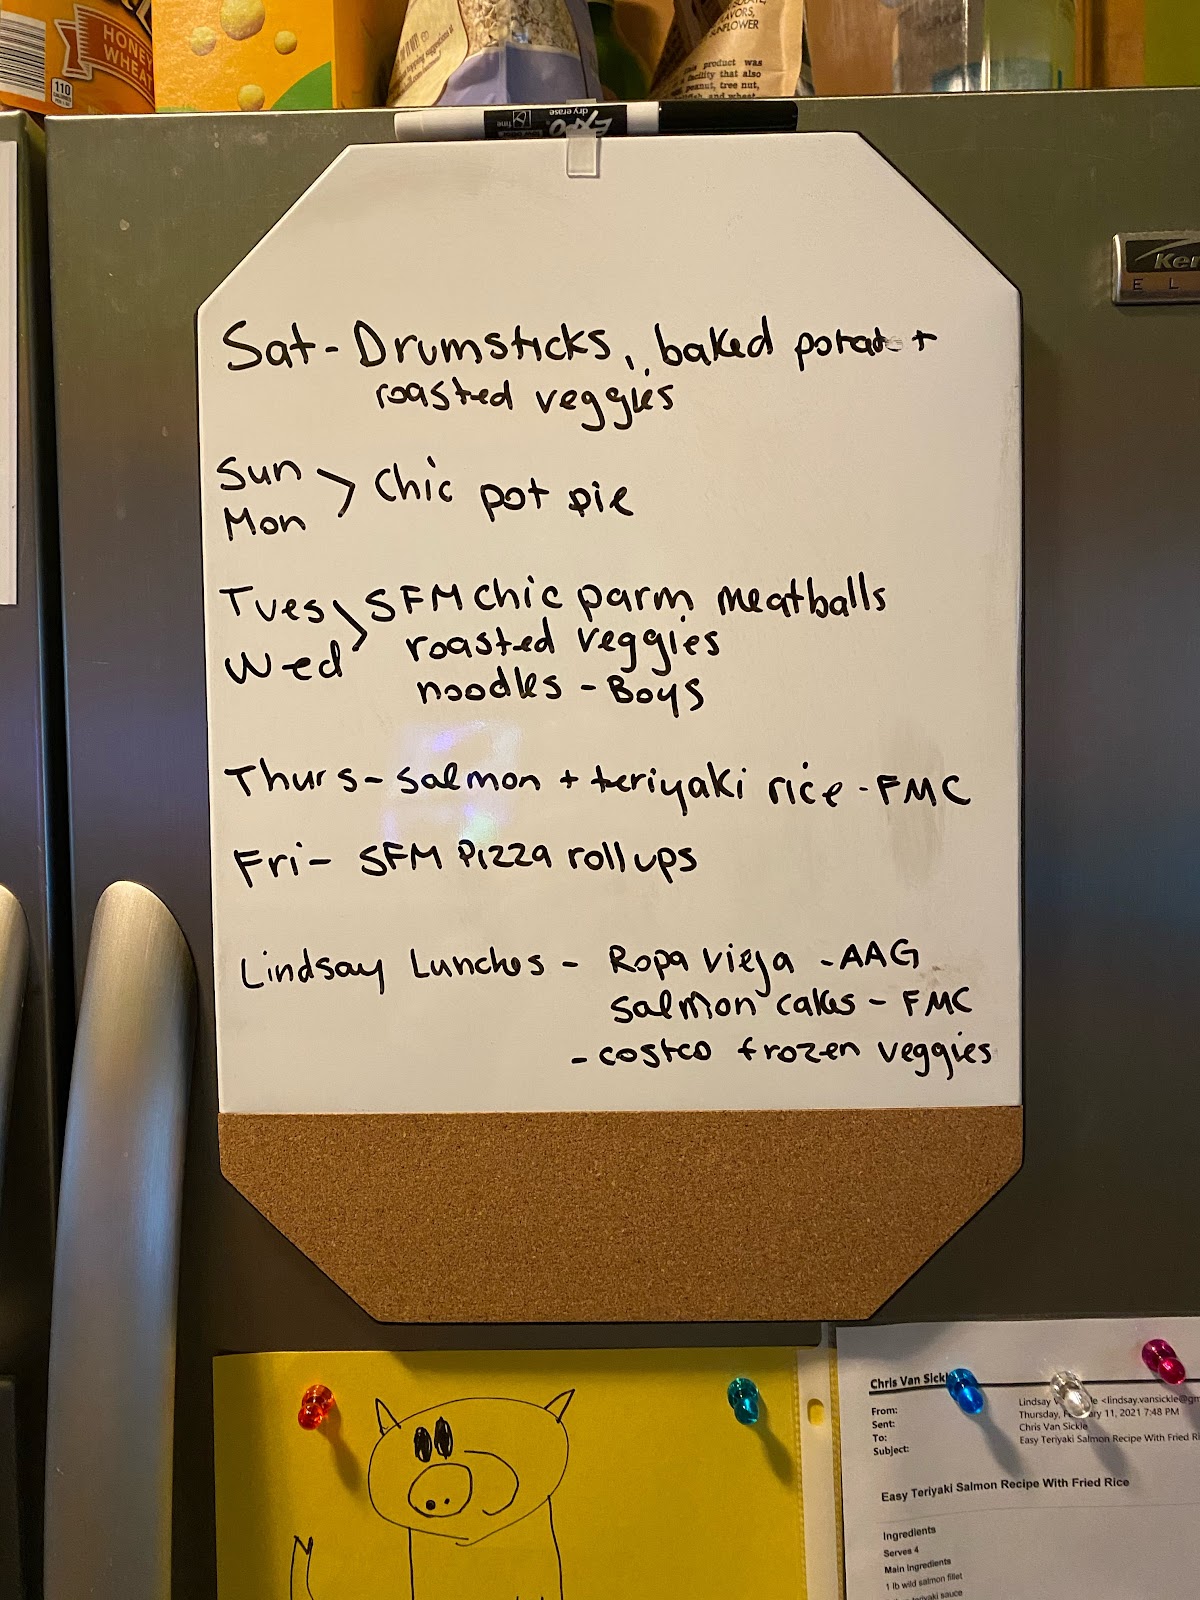 HONEY
WHEAT
110
FLAVORS,
SUNFLOWER
product was
facility that also
peanut, tree nut,
and wheat
EXPO
dry erase
fine
Ken
E L
Sat - Drumsticks, baked potat +
roasted veggies
Sun
Mon > Chic pot pie
Tues > SFM chic parm meatballs
Wed roasted veggies
noodles - Boys
Thurs - salmon + teriyaki rice - FMC
Fri - SFM Pizza roll ups
Lindsay Lunches - Ropa vieja - AAG
salmon cakes - FMC
- costco frozen veggies
Chris Van Sickl
From: Lindsay V e <lindsay.vansickle@gm
Sent: Thursday, February 11, 2021 7:48 PM
To: Chris Van Sickle
Subject: Easy Teriyaki Salmon Recipe With Fried Ri
Easy Teriyaki Salmon Recipe With Fried Rice
Ingredients
Serves 4
Main Ingredients
1 lb wild salmon fillet
teriyaki sauce